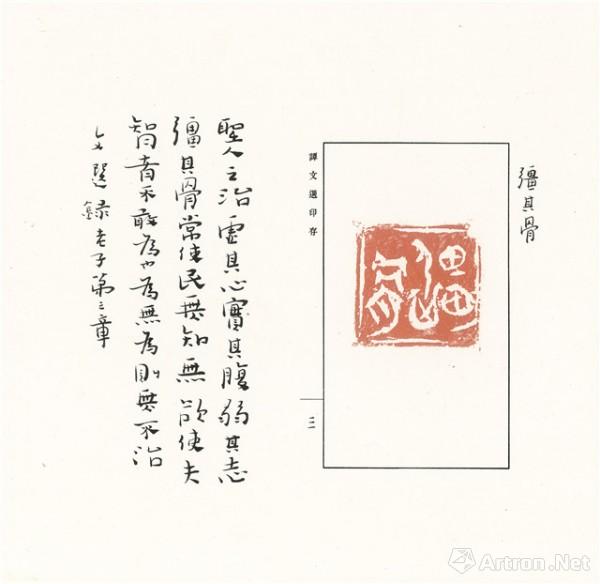 彊其骨
譚文選印存
彊其骨
聖人之治虛其心實其腹弱其志
彊其骨常使民無知無欲使夫
智者不敢為也為無為則無不治
文選錄老子第三章
Artron.Net